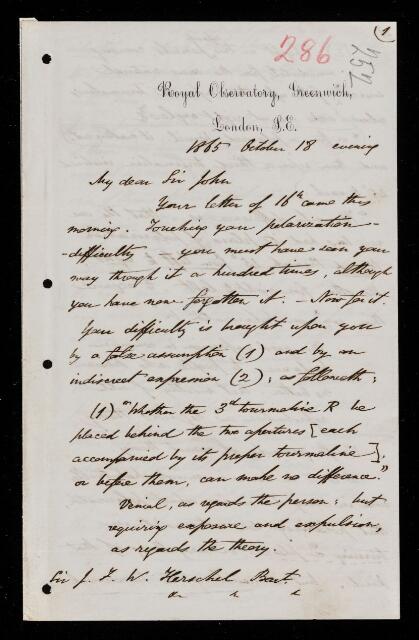 (1
286
157
Royal Observatory, Greenwich,
London, S.E.
1865 October 18 evening
My dear Sir John
Your letter of 16th came this
morning. Touching your polarization-
-difficulty – you must have seen your
way through it a hundred times, although
you have now forgotten it. – Now for it
Your difficulty is brought upon you
by a false assumption (1) and by an
indiscreet expression (2); as followeth;
(1) "Whether the 3rd tourmaline R be
placed behind the two apertures [each
accompanied by its proper tourmaline],
or before them, can make no difference."
Venial, as regards the person; but
requiring exposure and expulsion,
as regards the theory.
Sir J. F. W. Herschel Bart